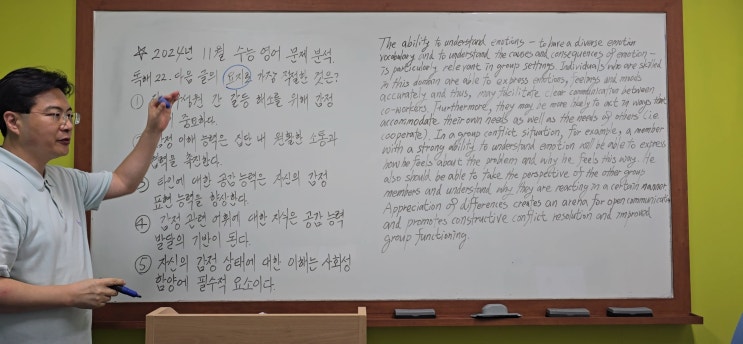 ☆ 2024년 11월 수능 영어 문제 분석.
독해 22. 다음 글의 요지로 가장 적절한 것은?
① 구성원 간 갈등 해소를 위해 감정
중요하다.
이해 능력은 집단 내 원활한 소통과
협력을 촉진한다.
③ 타인에 대한 공감 능력은 자신의 감정
표현 능력을 향상한다.
④ 감정 관련 어휘에 대한 지식은 공감 능력
발달의 기반이 된다.
⑤ 자신의 감정 상태에 대한 이해는 사회성
함양에 필수적 요소이다.
The ability to understand emotions — to have a diverse emotion
vocabulary and to understand the causes and consequences of emotion —
is particularly relevant in group settings. Individuals who are skilled
in this domain are able to express emotions, feelings and moods
accurately and thus, may facilitate clear communication between
co-workers. Furthermore, they may be more likely to act in ways that
accommodate their own needs as well as the needs of others (i.e.
cooperate). In a group conflict situation, for example, a member
with a strong ability to understand emotion will be able to express
how he feels about the problem and why he feels this way. He
also should be able to take the perspective of the other group
members and understand why they are reacting in a certain manner.
Appreciation of differences creates an arena for open communication
and promotes constructive conflict resolution and improved
group functioning.